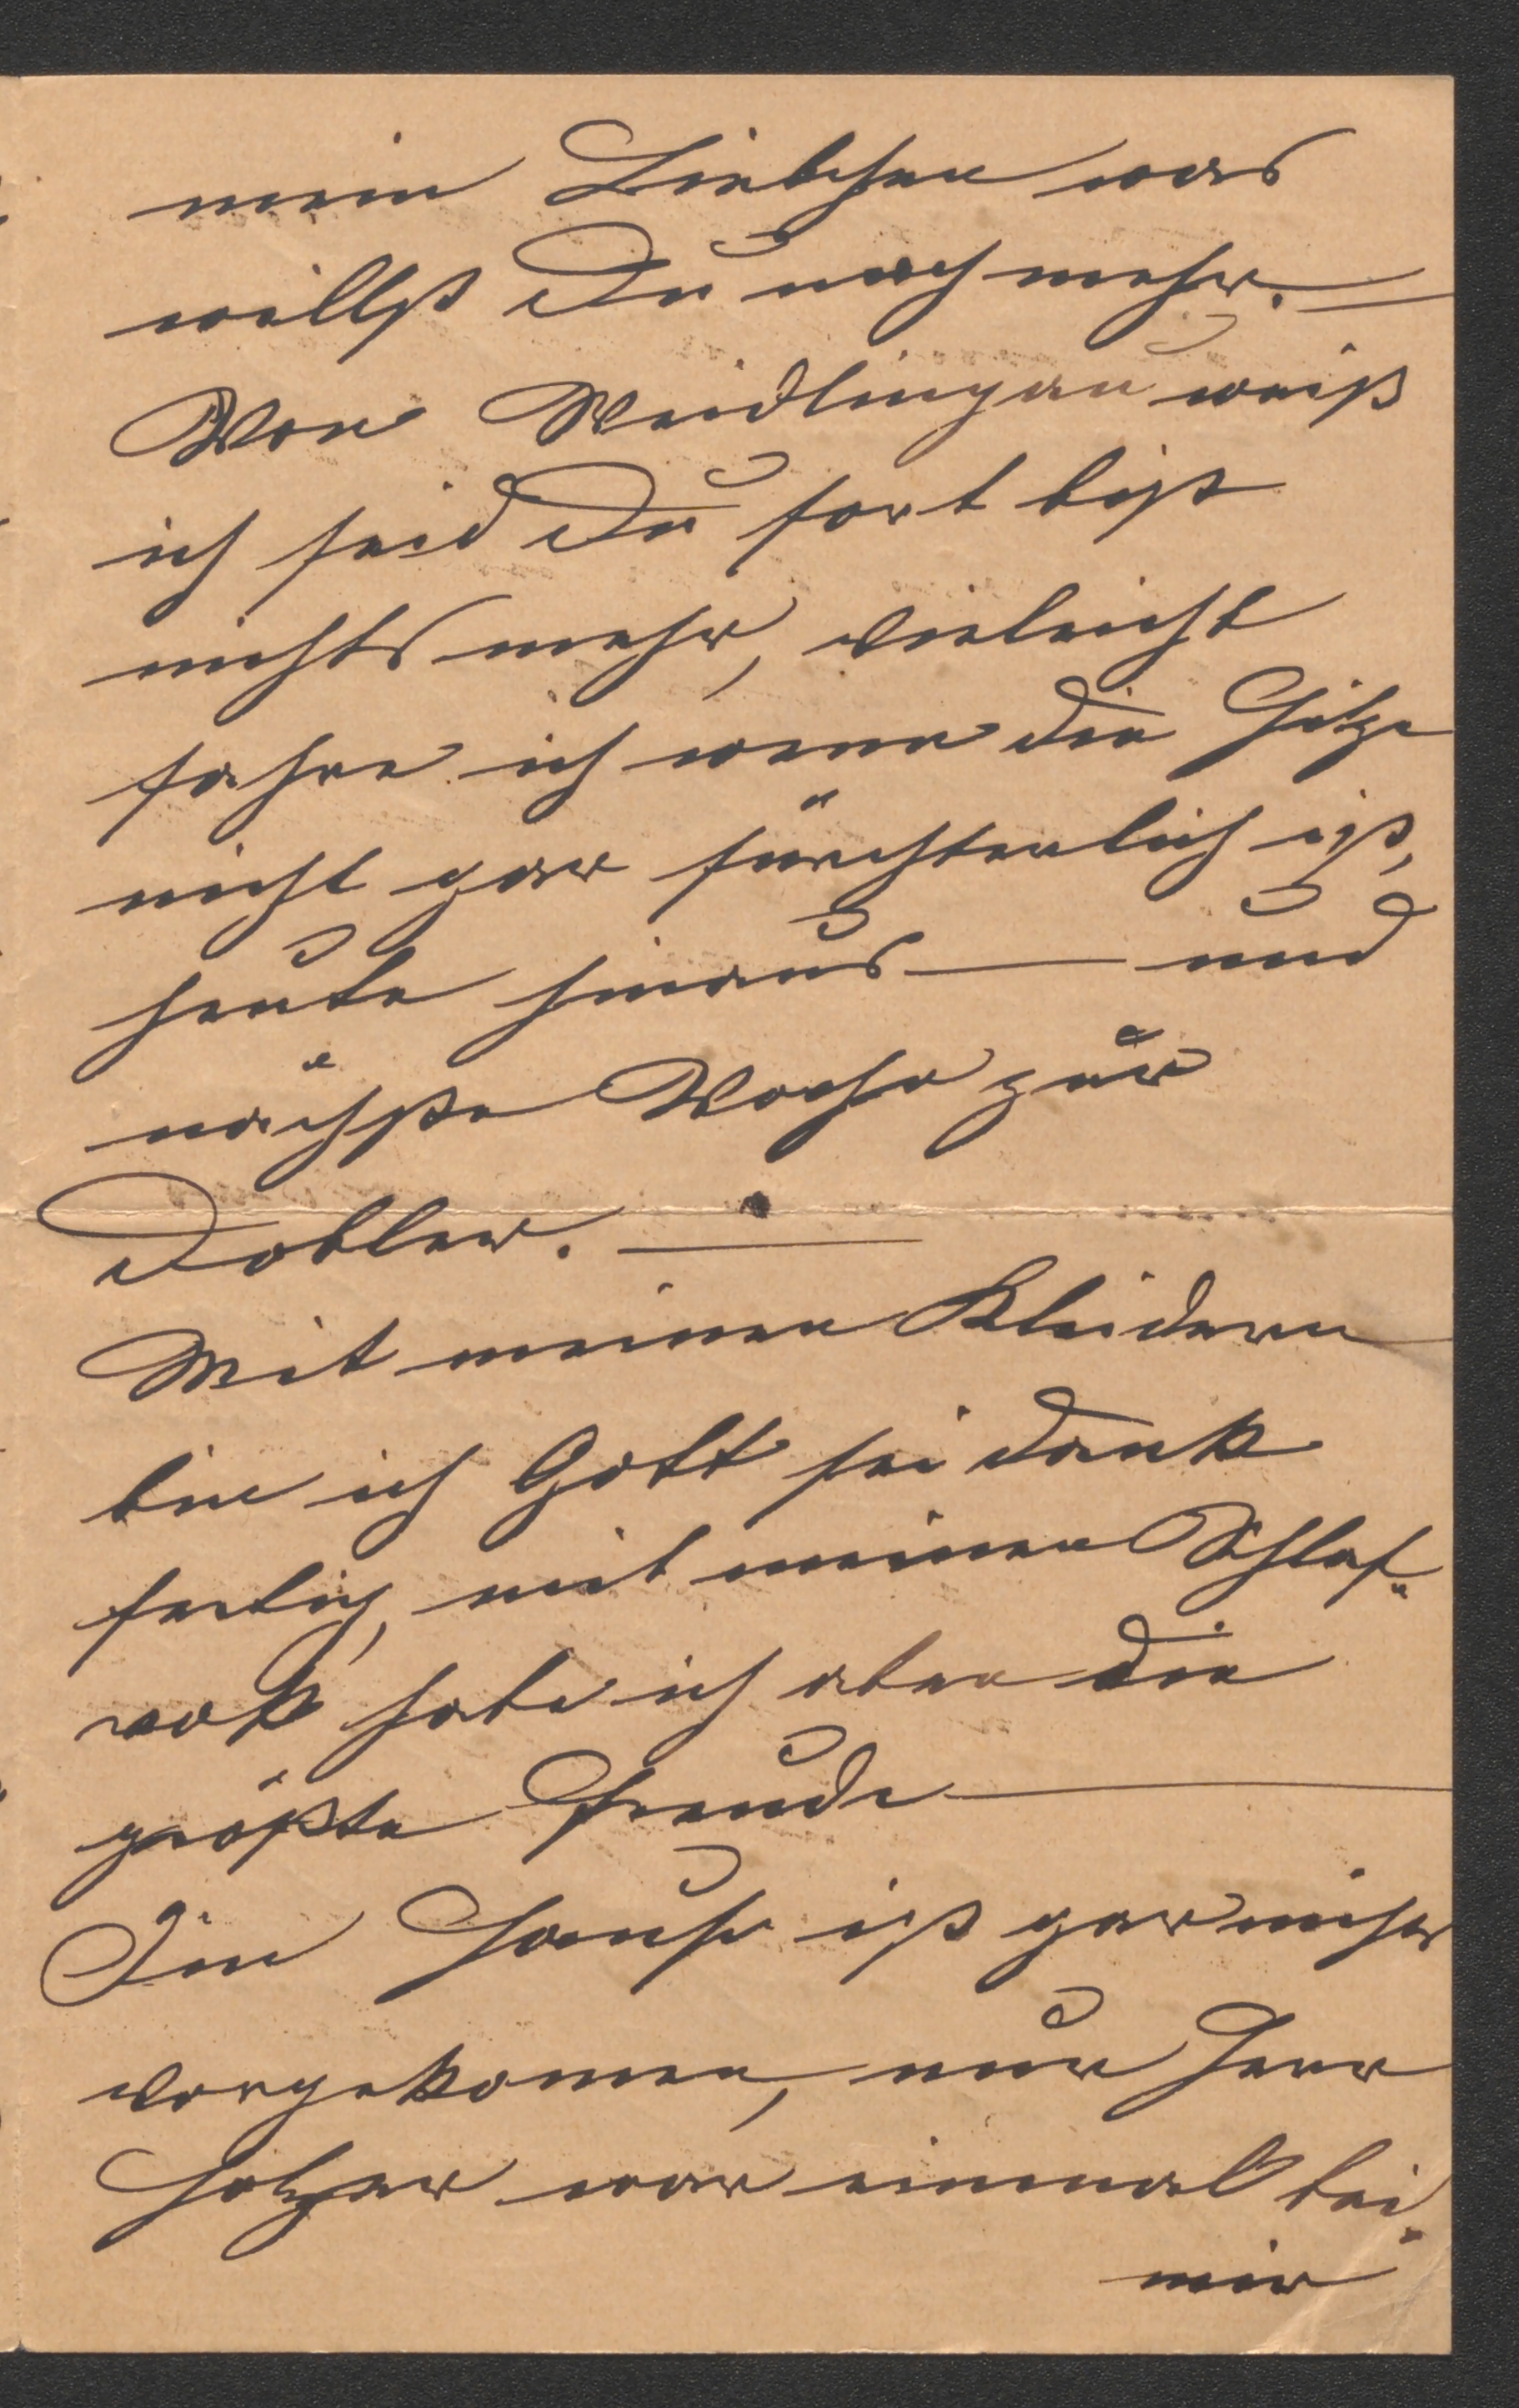 mein Liebchen was
willst Du noch mehr. —
Von Weidlingau weiß
ich seid Du fort bist
nichts mehr, vieleicht
fahre ich wenn die Hitze
nicht gar fürchterlich ist,
heute hinaus — und
nächste Woche zur
Dobler. —
Mit meinen Kleidern
bin ich Gott sei dank
fertig, mit meinen Schlaf-
rok habe ich aber die
größte Freude —
Im Hause ist gar nichts
vorgekomen, nur Herr
Holzer war einmal bei
mir